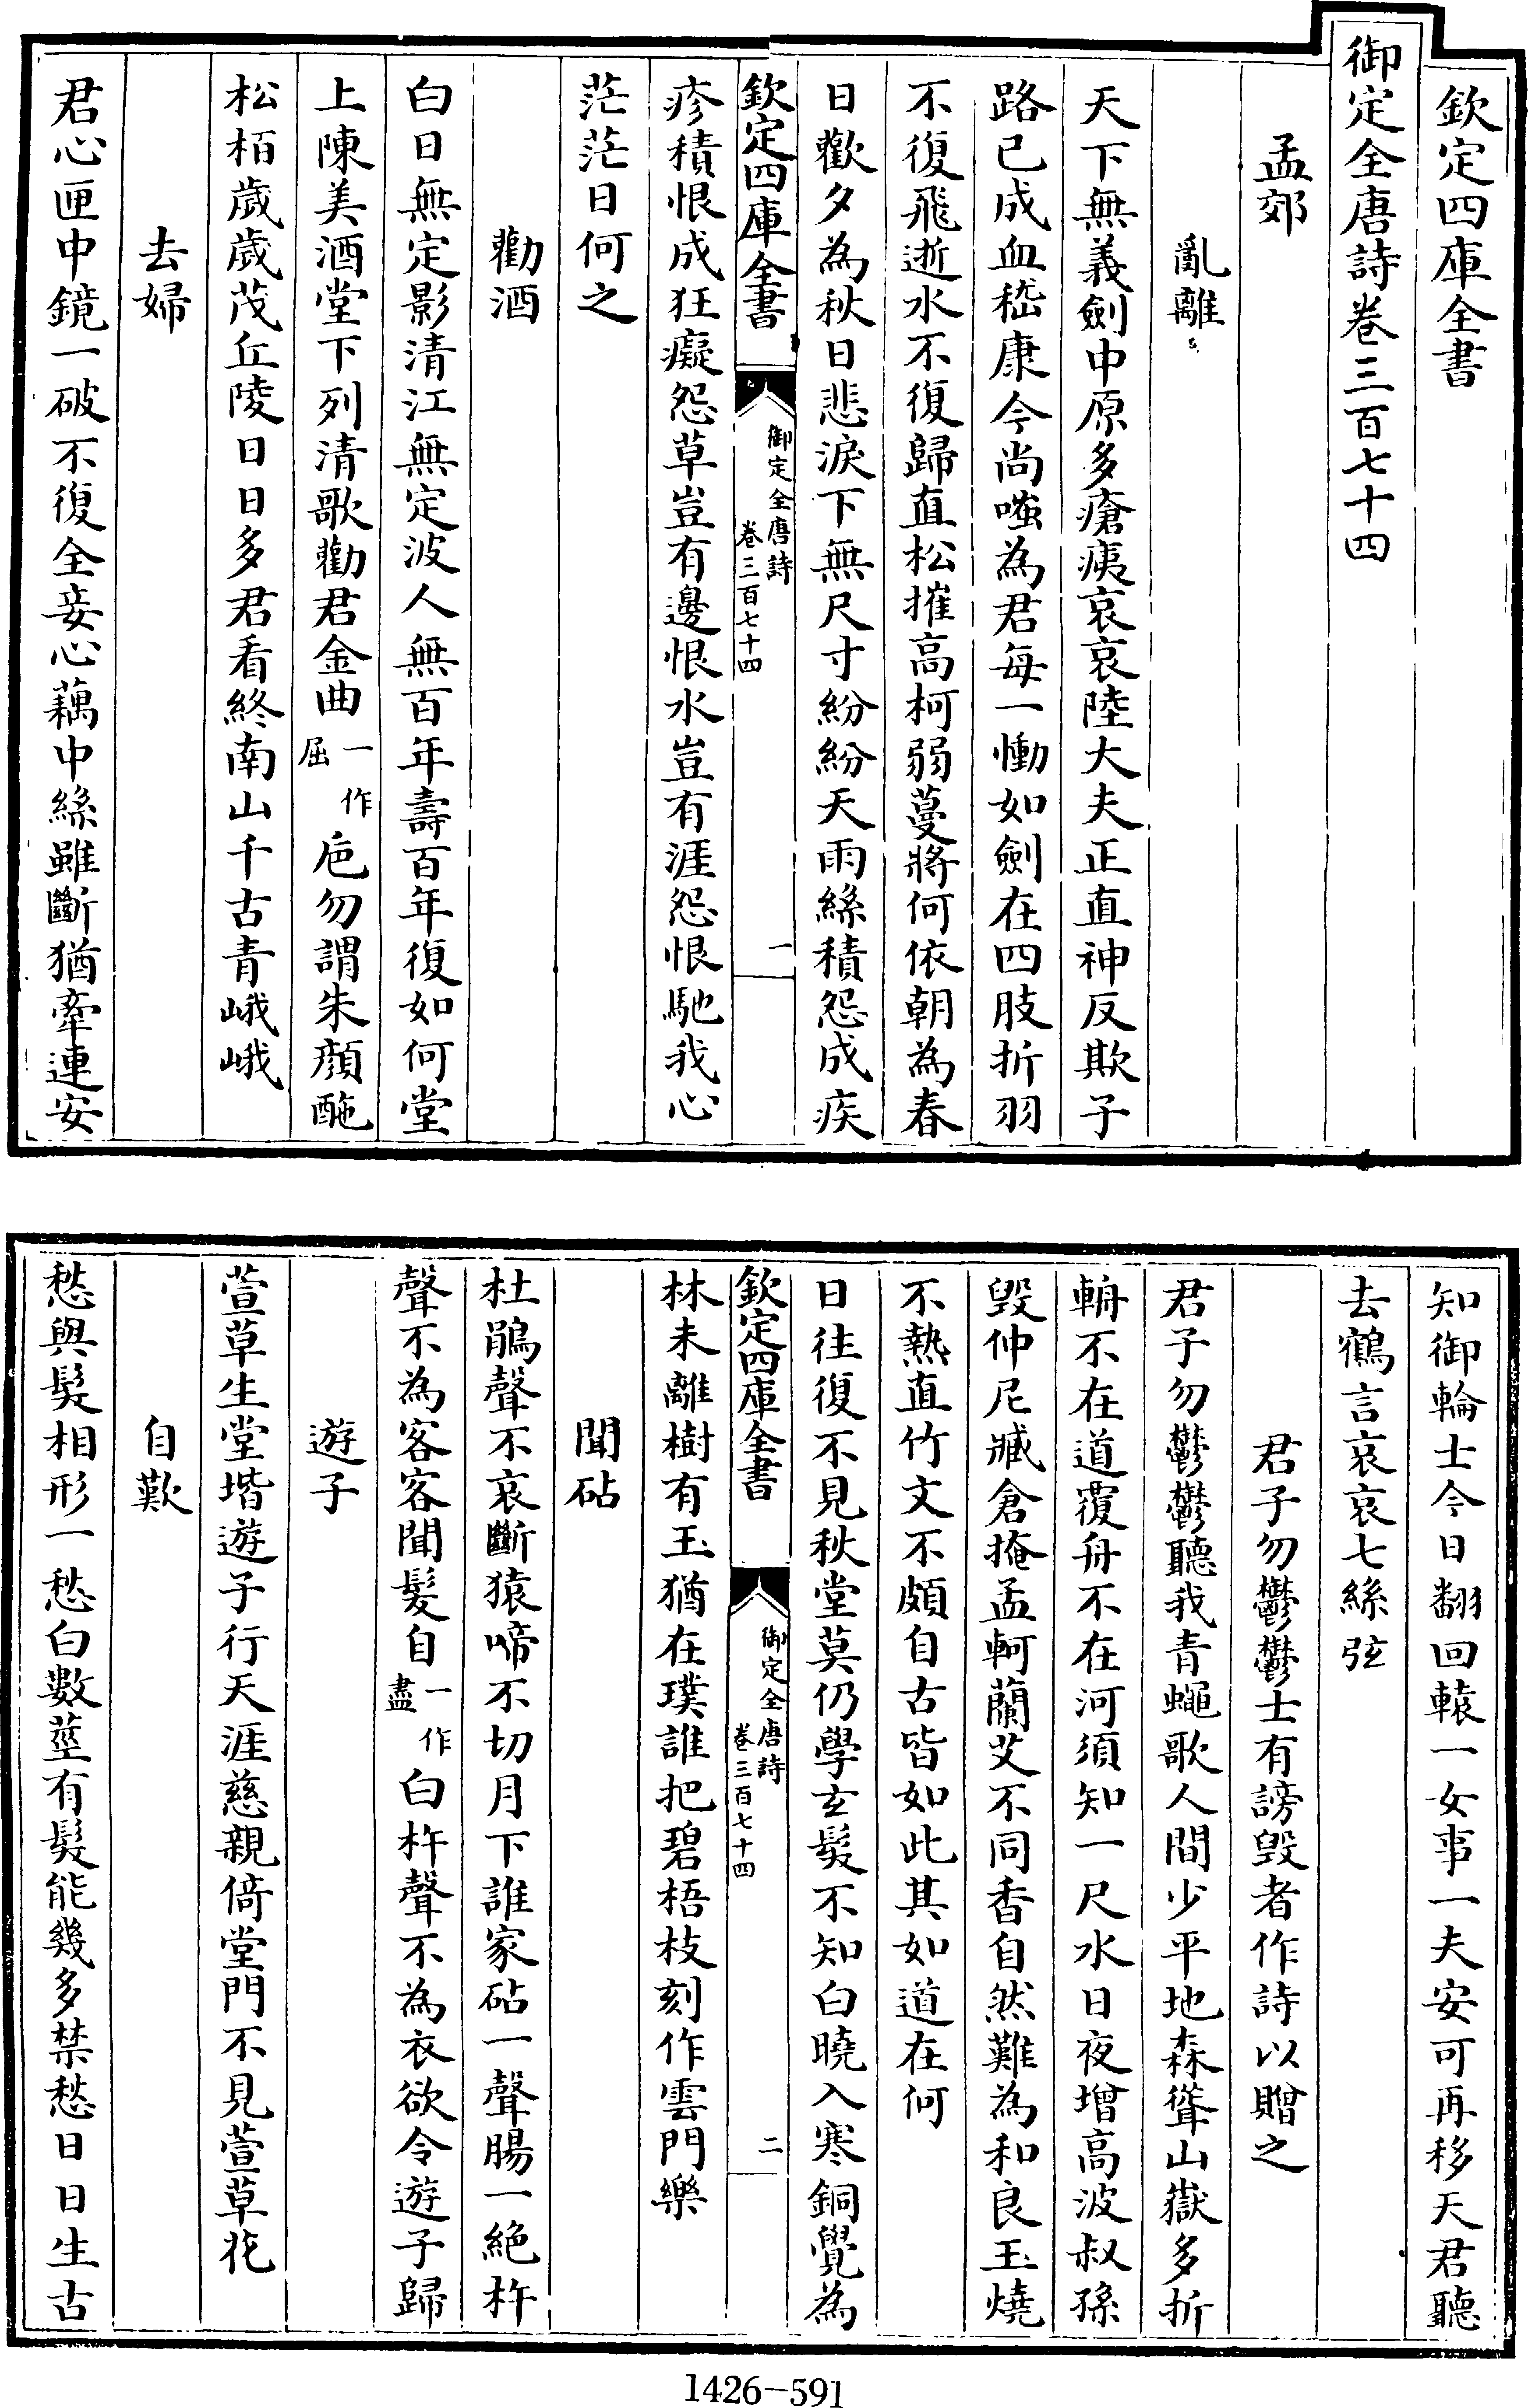 欽定四庫全書
御定全唐詩卷三百七十四
孟郊
亂離
天下無義劍中原多瘡痍哀哀陸大夫正直神反欺子
路已成血嵇康今尚嗤為君每一慟如劍在四肢折羽
不復飛逝水不復歸直松摧高柯弱蔓將何依朝為春
日歡夕為秋日悲淚下無尺寸紛紛天雨絲積怨成疾
欽定四庫全書
御定全唐詩
卷三百七十四
一
疹積恨成狂癡怨草豈有邊恨水豈有涯怨恨馳我心
茫茫日何之
勸酒
白日無定影清江無定波人無百年壽百年復如何堂
上陳美酒堂下列清歌勸君金曲一作屈卮勿謂朱顔酡
松栢歲歲茂丘陵日日多君看終南山千古青峨峨
去婦
君心匣中鏡一破不復全妾心藕中絲雖斷猶牽連安
知御輪士今日翻回轅一女事一夫安可再移天君聽
去鶴言哀哀七絲弦
君子勿鬱鬱士有謗毀者作詩以贈之
君子勿鬱鬱聽我青蠅歌人間少平地森聳山嶽多折
輈不在道覆舟不在河須知一尺水日夜增高波叔孫
毀仲尼臧倉掩孟軻蘭艾不同香自然難為和良玉燒
不熱直竹文不頗自古皆如此其如道在何
日往復不見秋堂莫仍學玄髮不知白曉入寒銅覺為
欽定四庫全書
御定全唐詩
卷三百七十四
二
林未離樹有玉猶在璞誰把碧梧枝刻作雲門樂
聞砧
杜鵑聲不哀斷猿啼不切月下誰家砧一聲腸一絕杵
聲不為客客聞髮自一作盡白杵聲不為衣欲令遊子歸
遊子
萱草生堂堦遊子行天涯慈親倚堂門不見萱草花
自歎
愁與髮相形一愁白數莖有髮能幾多禁愁日日生古
1426-591